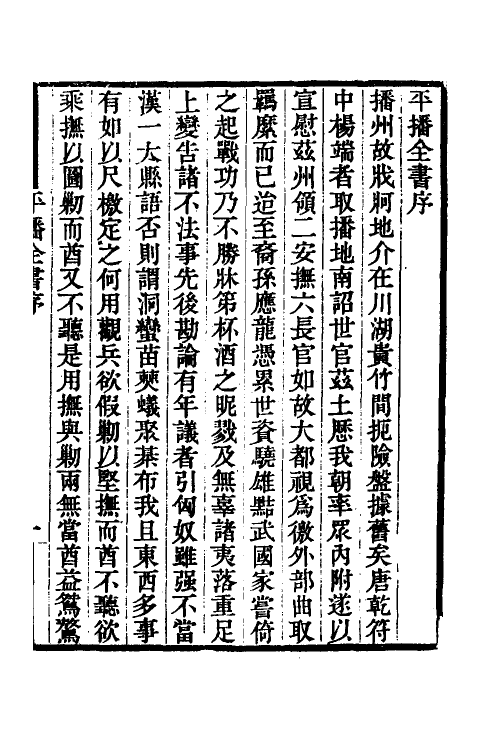 平播全書序
播州故戕牁地介在川湖貴竹間扼險盤據舊矣唐乾符
中楊端者取播地南詔世官茲土歷我朝率眾內附遂以
宣慰茲州領二安撫六長官如故大都視為徼外部曲取
羈縻而已迨至裔孫應龍憑累世資驍雄黠武國家嘗倚
之起戰功乃不勝牀笫杯酒之昵戮及無辜諸夷落重足
上變告諸不法事先後勘論有年議者引匈奴雖强不當
漢一大縣語否則謂洞蠻苗僰蟻聚棊布我且東西多事
有如以尺檄定之何用觀兵欲假勦以堅撫而酋不聽欲
乘撫以圖勦而酋又不聽是用撫與勦兩無當酋益鴛驁
平播全書序
一